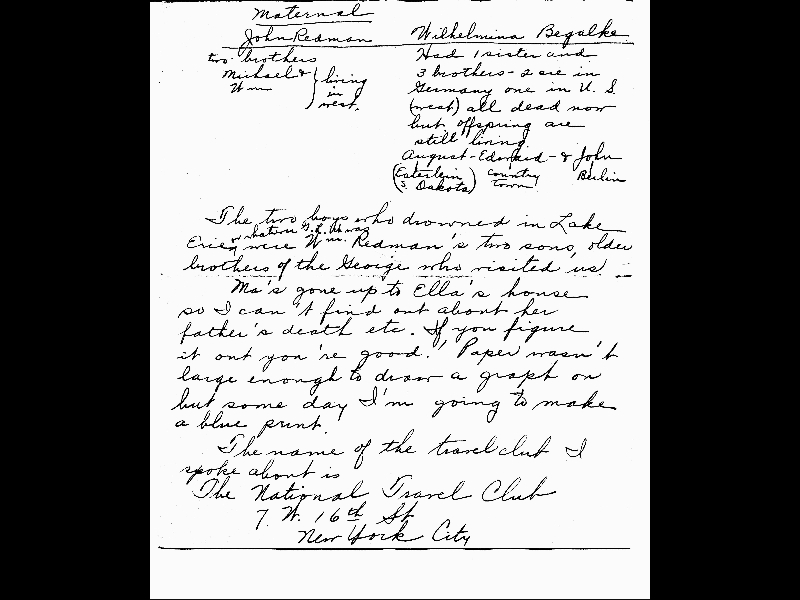 Maternal
John Redman Wilhelmina Begalke
two brothers
Michael &
Wm
living
in
west.
Had 1 sister and
3 brothers - 2 are in
Germany one in U. S.
(west) all dead now
but offspring are
still living
August - Edward - & John
(Esterlein
S. Dakota) Country
Town Berlin
The two boys who drowned in Lake
Erie were Wm. Redman's two sons, older
brothers of the George who visited us.
Ma's gone up to Ella's house
so I can't find out about her
father's death etc. If you figure
it out you're good! Paper wasn't
large enough to draw a graph on
but some day I'm going to make
a blue print.
The name of the travel club I
spoke about is
The National Travel Club
7 W. 16th St
New York City